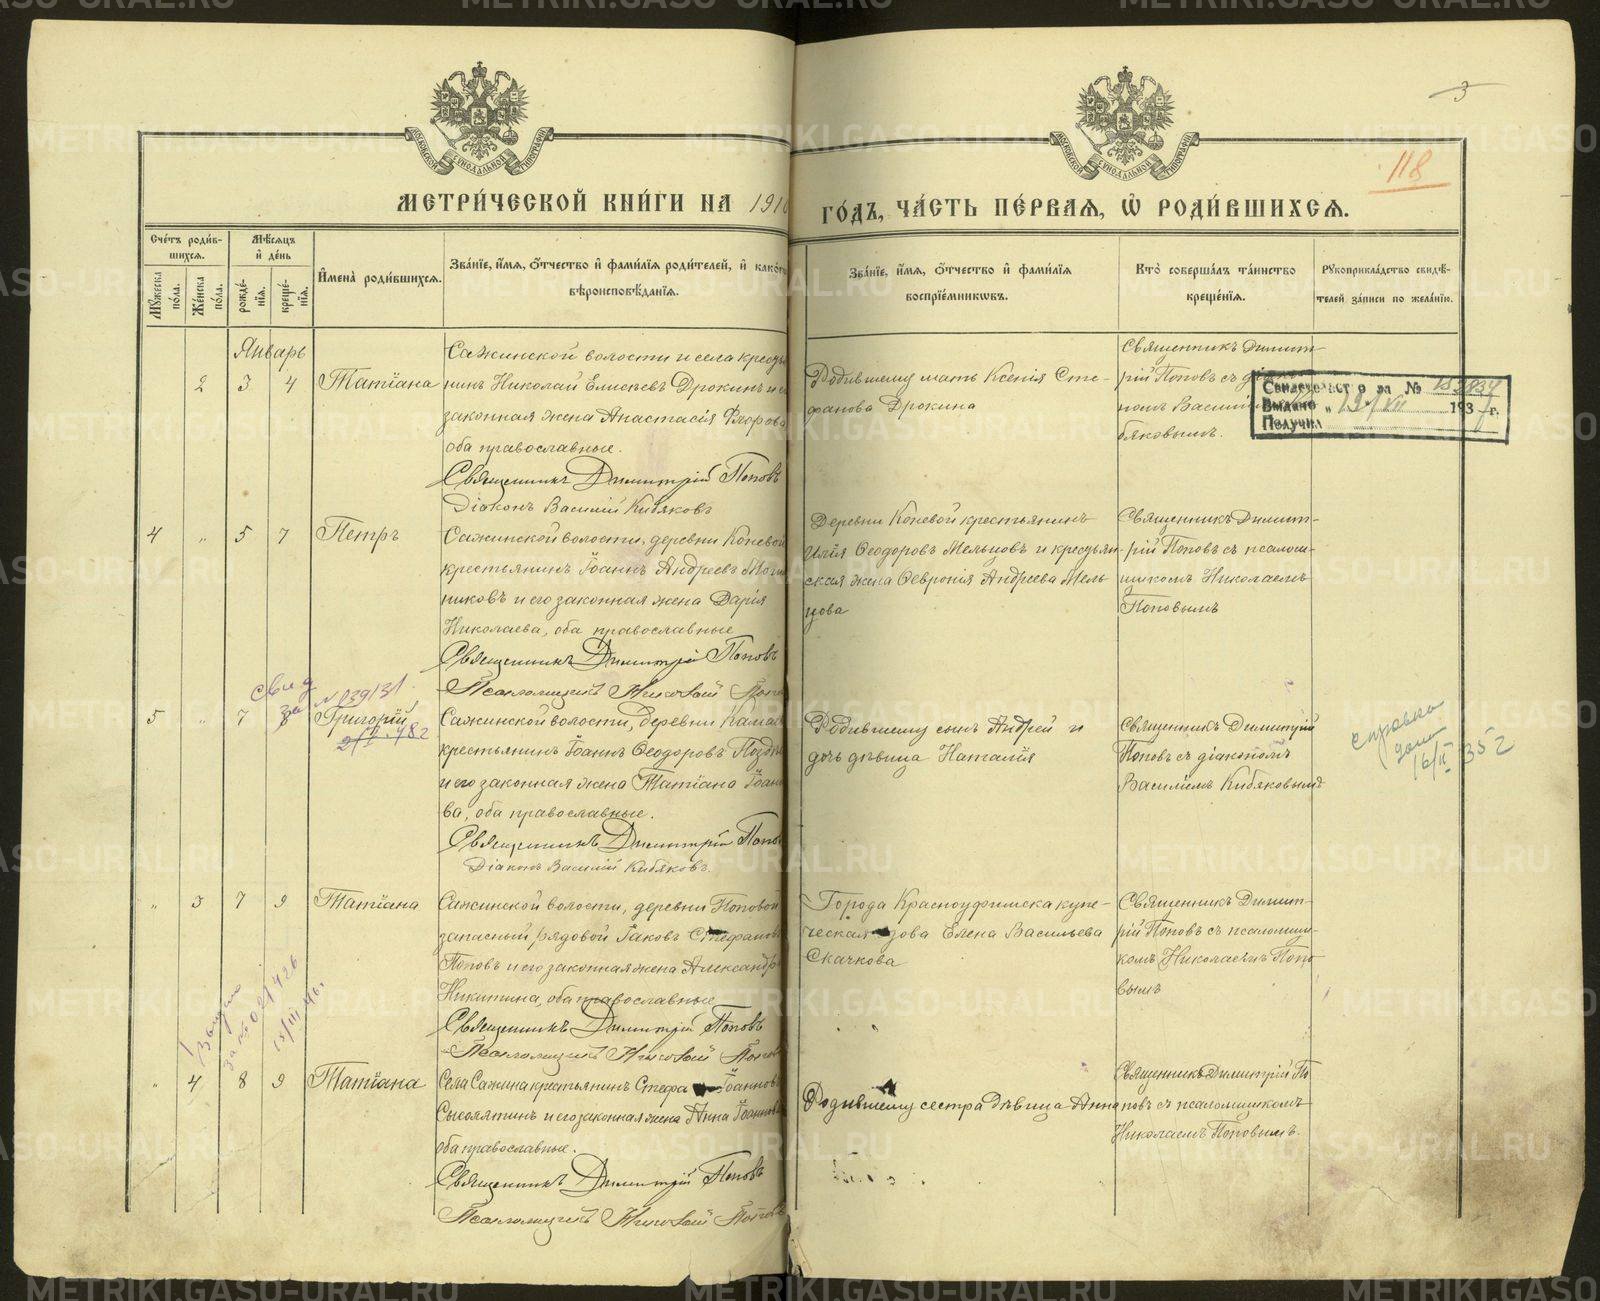 МЕТРИ́ЧЕСКОЙ КНИ́ГИ НА 1910 ГО́ДЪ, ЧА́СТЬ ПЕ́РВАЯ, Ѡ РОДИ́ВШИХСЯ.
3
118
МОСКОВСКОЙ СѴНОДАЛЬНОЙ ТИПОГРАФІИ
МОСКОВСКОЙ СѴНОДАЛЬНОЙ ТИПОГРАФІИ
Сче́тъ роди́вшихся.
Мꙋ́жеска по́ла.
Же́нска по́ла.
Мѣ́сяцъ и҆ де́нь
рожде́нїя.
креще́нїя.
И҆мена̀ роди́вшихся.
Зва́нїе, и҆́мя, ѻ҆́тчество и҆ фами́лїя роди́телей, и҆ како́гѡ
вѣроисповѣ́данїя.
Зва́нїе, и҆́мя, ѻ҆́тчество и҆ фами́лїя
воспрїе́мникѡвъ.
Кто̀ соверша́лъ та́инство
креще́нїя.
Рꙋкоприкла́дство свидѣ́-
телей за́писи по жела́нїю.
Январь
2 3 4 Татіана
Сажинской волости и села крестья
нинъ Николай Елисѣевъ Дрокинъ и его
законная жена Анастасія Флорова
оба православные.
Священникъ Димитрій Поповъ
Діаконъ Василій Кибяковъ
Родившему мать Ксенія Сте-
фанова Дрокина
Священникъ Димит-
рій Поповъ съ діако-
номъ Василі
бяковымъ.
Свидетельство за №
Выдано " 19 / VII 1937 г.
Получил
4 " 5 7 Петръ
Сажинской волости, деревни Коневой
крестьянинъ Іоаннъ Андреевъ
никовъ и его законная жена Дарія
Николаева, оба православные
Священникъ Димитрій Поповъ
Псаломщикъ Николай Попов
Деревни Коневой крестьянинъ
Илія Ѳеодоровъ Мельцовъ и крестьян-
ская жена Ѳевронія Андреева Мель
цова
Священникъ Димит-
рій Поповъ съ псалом-
щикомъ Николаемъ
Поповымъ
свид
за № 039131
5 " 7 Григорій
Сажинской волости, деревни
крестьянинъ Іоаннъ Ѳеодоровъ
и его законная жена Татіана Іоанно
ва, оба православные.
Священникъ Димитрій Попов
Діаконъ Василій Кибяковъ.
Родившему сынъ Андрей и
дочь дѣвица Наталія
Священникъ Димитрій
Поповъ съ діакономъ
Василіемъ Кибяковымъ
справка
дана
16/II 352
" 3 7 9 Татіана
Сажинской волости, деревни Поповой
запасный рядовой Іаковъ Стефанов
Поповъ и его законная жена Александр
Никитина, оба православные
Священникъ Димитрій Поповъ
Псаломщикъ Николай Попов
Города Красноуфимска купе-
ческая вдова Елена Васильева
Скачкова
Священникъ Димит-
рій Поповъ съ псаломщи-
комъ Николаемъ Попо-
вымъ
Выдано
" 4 8 9 Татіана
Села Сажина крестьянинъ Стефа Іоанновъ
и его законная жена Анна Іоаннова
оба православные.
Священникъ Димитрій Поповъ
Псаломщикъ Николай Попов
Родившему сестра дѣвица Анна
Священникъ Димитрій По
повъ съ псаломщикомъ
Николаемъ Поповымъ.
METRIKI.GASO-URAL.RU